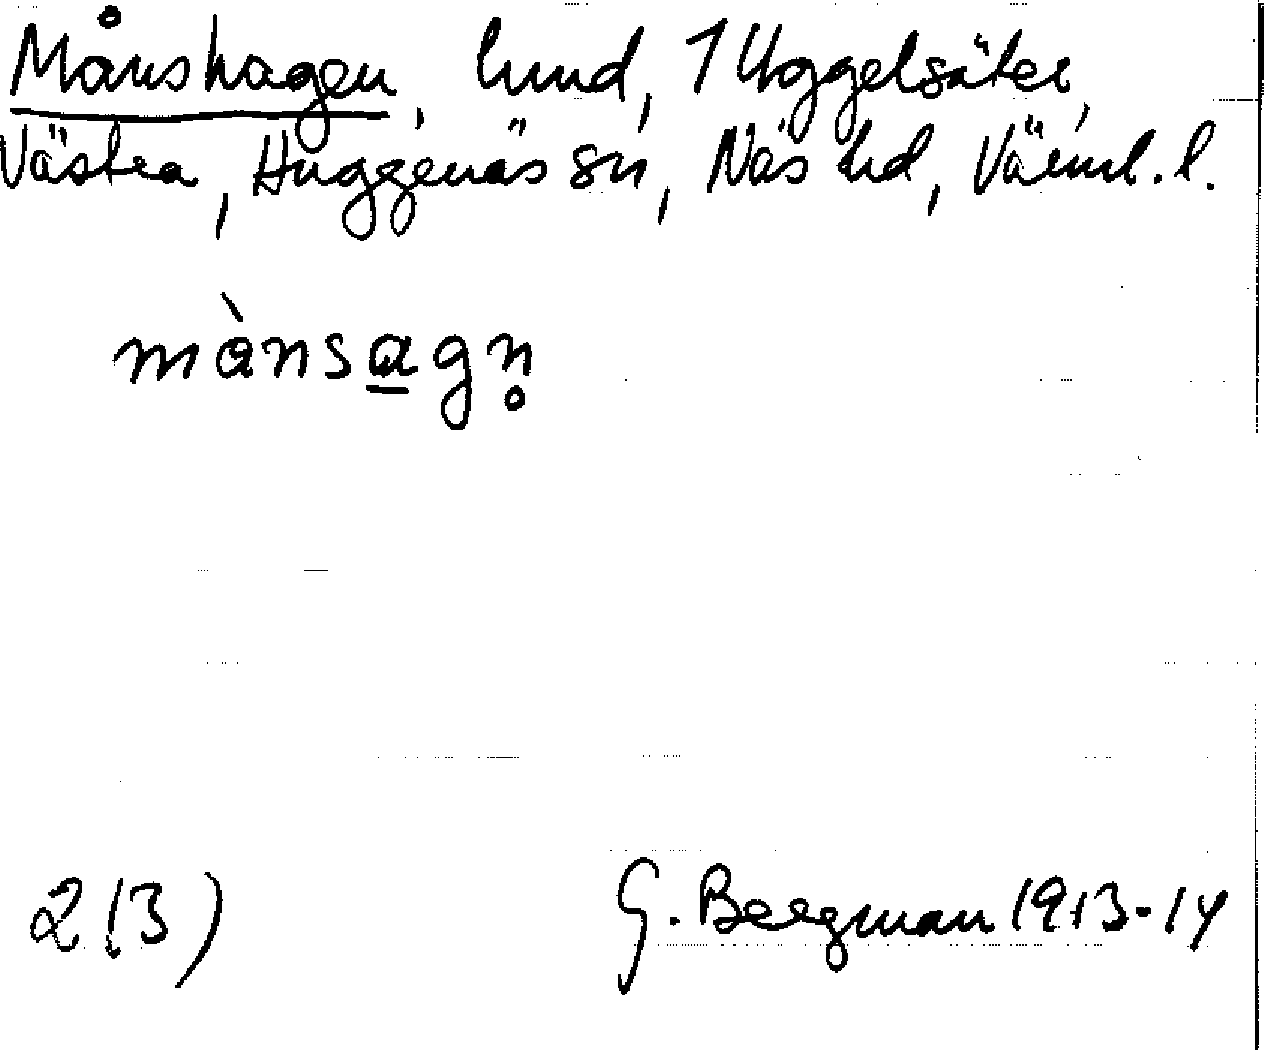 Månshagen, lund, 1 Uggelsäter,
Västra, Huggenäs sn, Näs hd, Värml. l.
mànsagn̥
2(3)
G. Bergman 1913-14